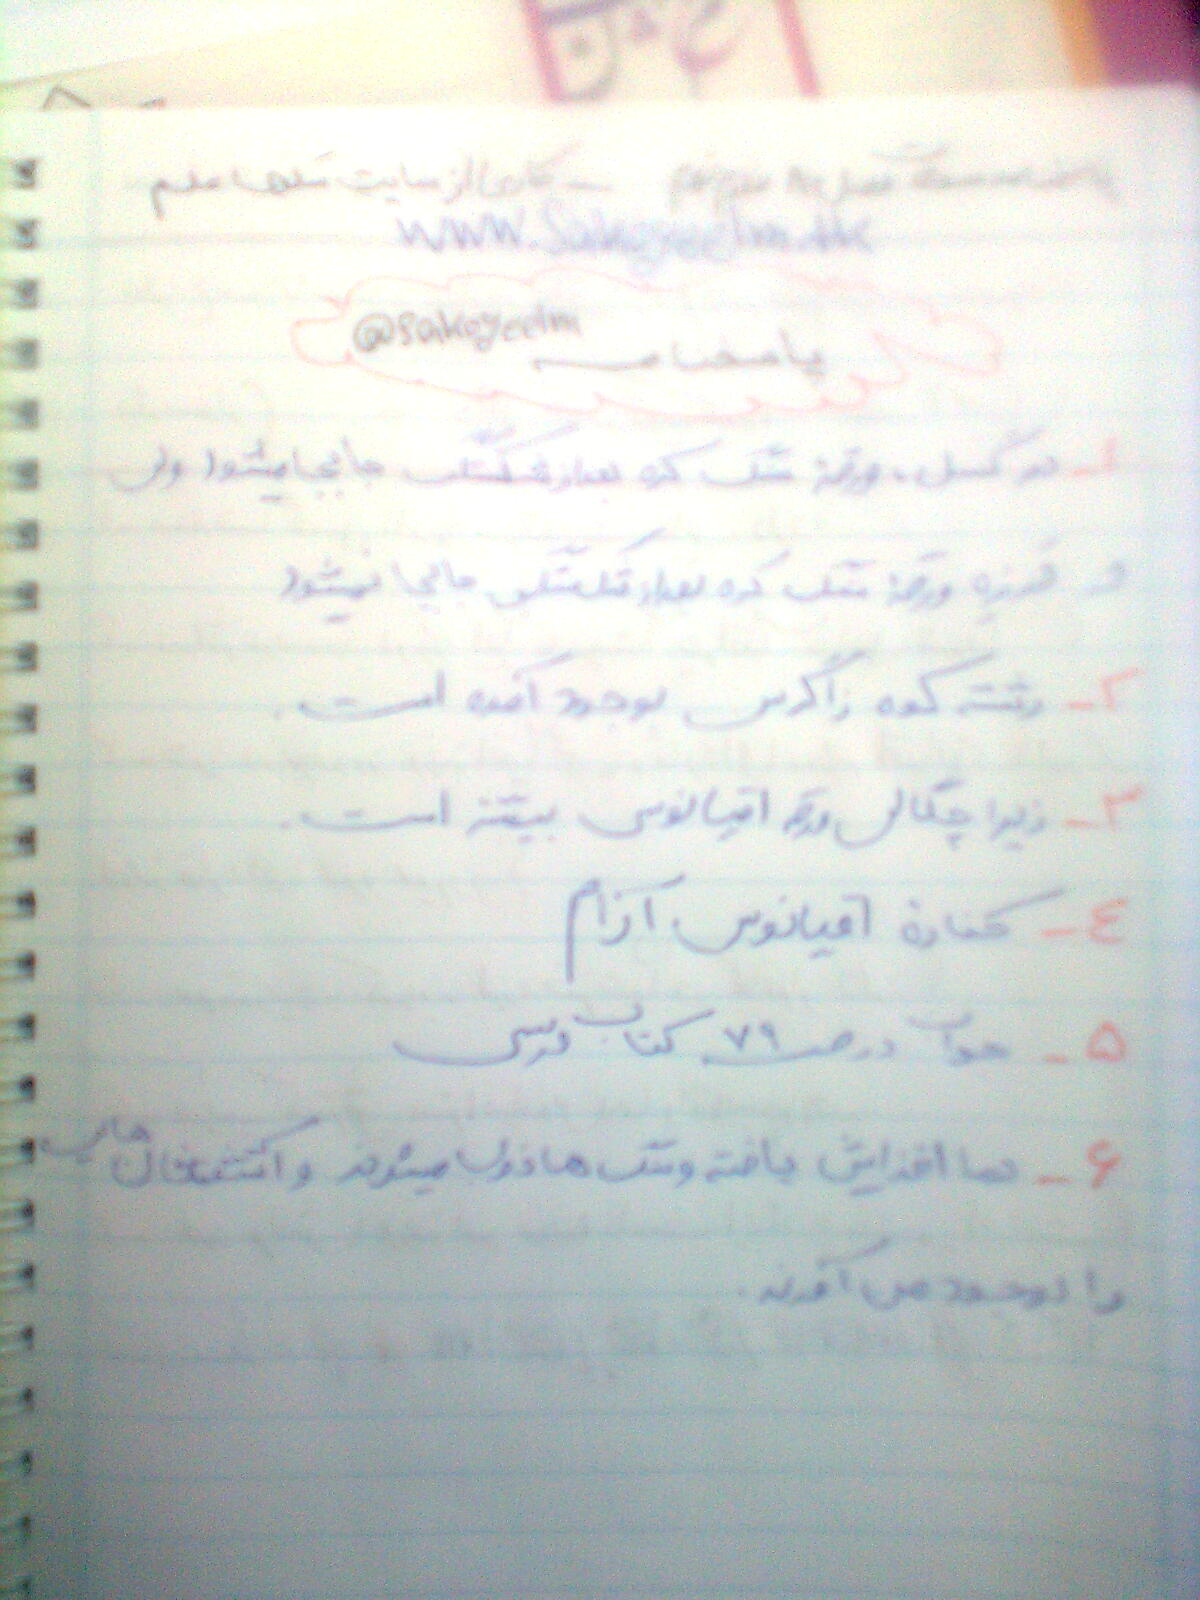 کاری از سایت سکوها علم
www.Sakoyeelm
@sakoyeelm
پاسخنامه
۱- در گسل، ورقهٔ سنگ کره بعد از شکستگی جابجا میشود ولی
در درزه ورقهٔ سنگ کره بعد از شکستگی جابجا نمیشود
۲- رشته کوه زاگرس بوجود آمده است.
۳- زیرا چگالی ورقه اقیانوسی بیشتر است.
٤- کنارهٔ اقیانوس آرام
۵- جواب در ص ۷۹ کتاب درسی
۶- دما افزایش یافته و سنگ ها ذوب میشوند و آتشفشان هایی
را بوجود می آورند.